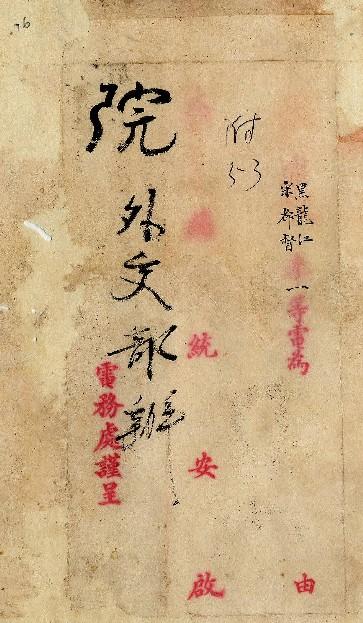 黑龍江
宋都督
一等電為
由
付
53
統安啟
院外交部辦
電務處謹呈